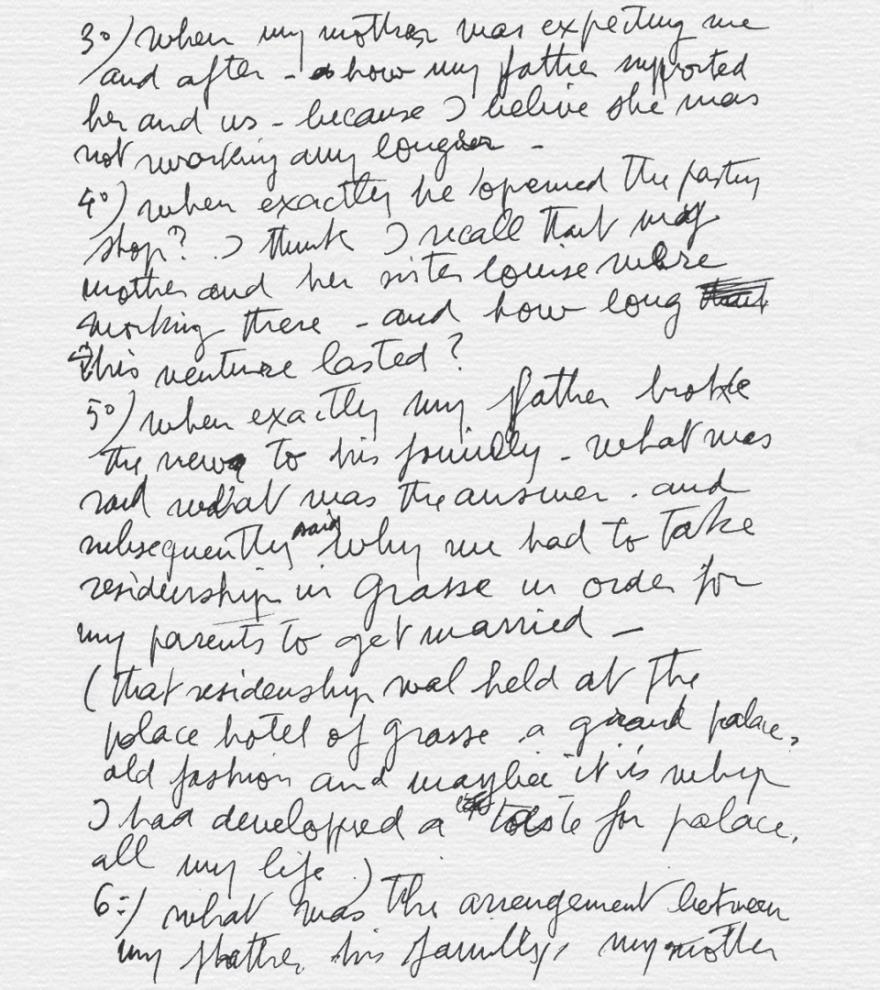 3°) when my mother was expecting me
and after - how my father supported
her and us - because I belive she was
not working any longuer -
4°) when exactly he opened the pastry
shop? I think I recall that my
mother and her sister louise where
working there - and how long
this venture lasted?
5°) when exactly my father broke
the news to his family - what was
said what was the answer. and
subsequently said why we had to take
residenship in grasse in order for
my parents to get married -
(that residenship was held at the
palace hotel of grasse a grand palace,
old fashion and maybee it is why
I had developped a taste for palace,
all my life.)
6=) what was the arrangement between
my father, his family, my mother